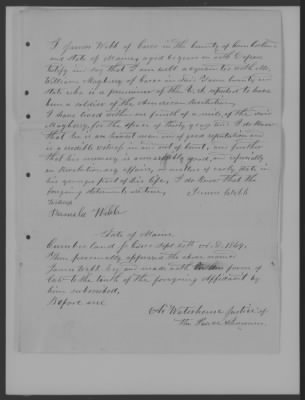 I James Webb of Casco in the County of Cumberland
and State of Maine, aged 60 years on oath Depose
Testify and Say that I am well acquainted with Mr.
William Mayberry of Casco in Said County and
State who is a pensioner of the U.S. reputed to have
been a soldier of the American Revolution.
I have lived within one fourth of a mile of the said
Mayberry, for the space of thirty years and I do know
that he is an honest man and of good reputation and
is a credible witness in and out of Court, and further
that his memory is remarkably good, and especially
on Revolutionary affairs, or matters of early date in
his younger part of his life, I do know that the
foregoing statements are true,
James Webb
Witness
Pamela Webb
State of Maine
Cumberland ss Casco Sept 20th A.D. 1849.
Then personally appeared the above named
James Webb Esq and made oath in due form of
law to the truth of the foregoing affidavit by
him subscribed,
Before me
Waterhouse Justice of
the Peace